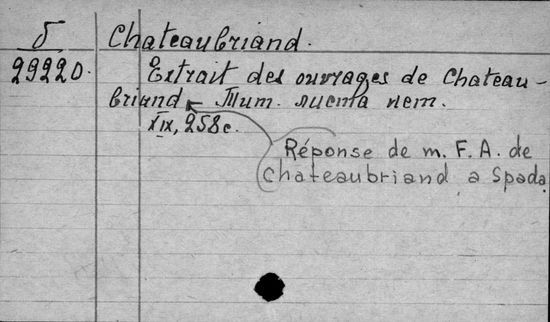 б
29220.
Chateaubriand.
Extrait des ouvrages de Chateau-
briand – Тит. листа нет.
XIX, 258 с.
Réponse de m. F. A. de
Chateaubriand a Spada